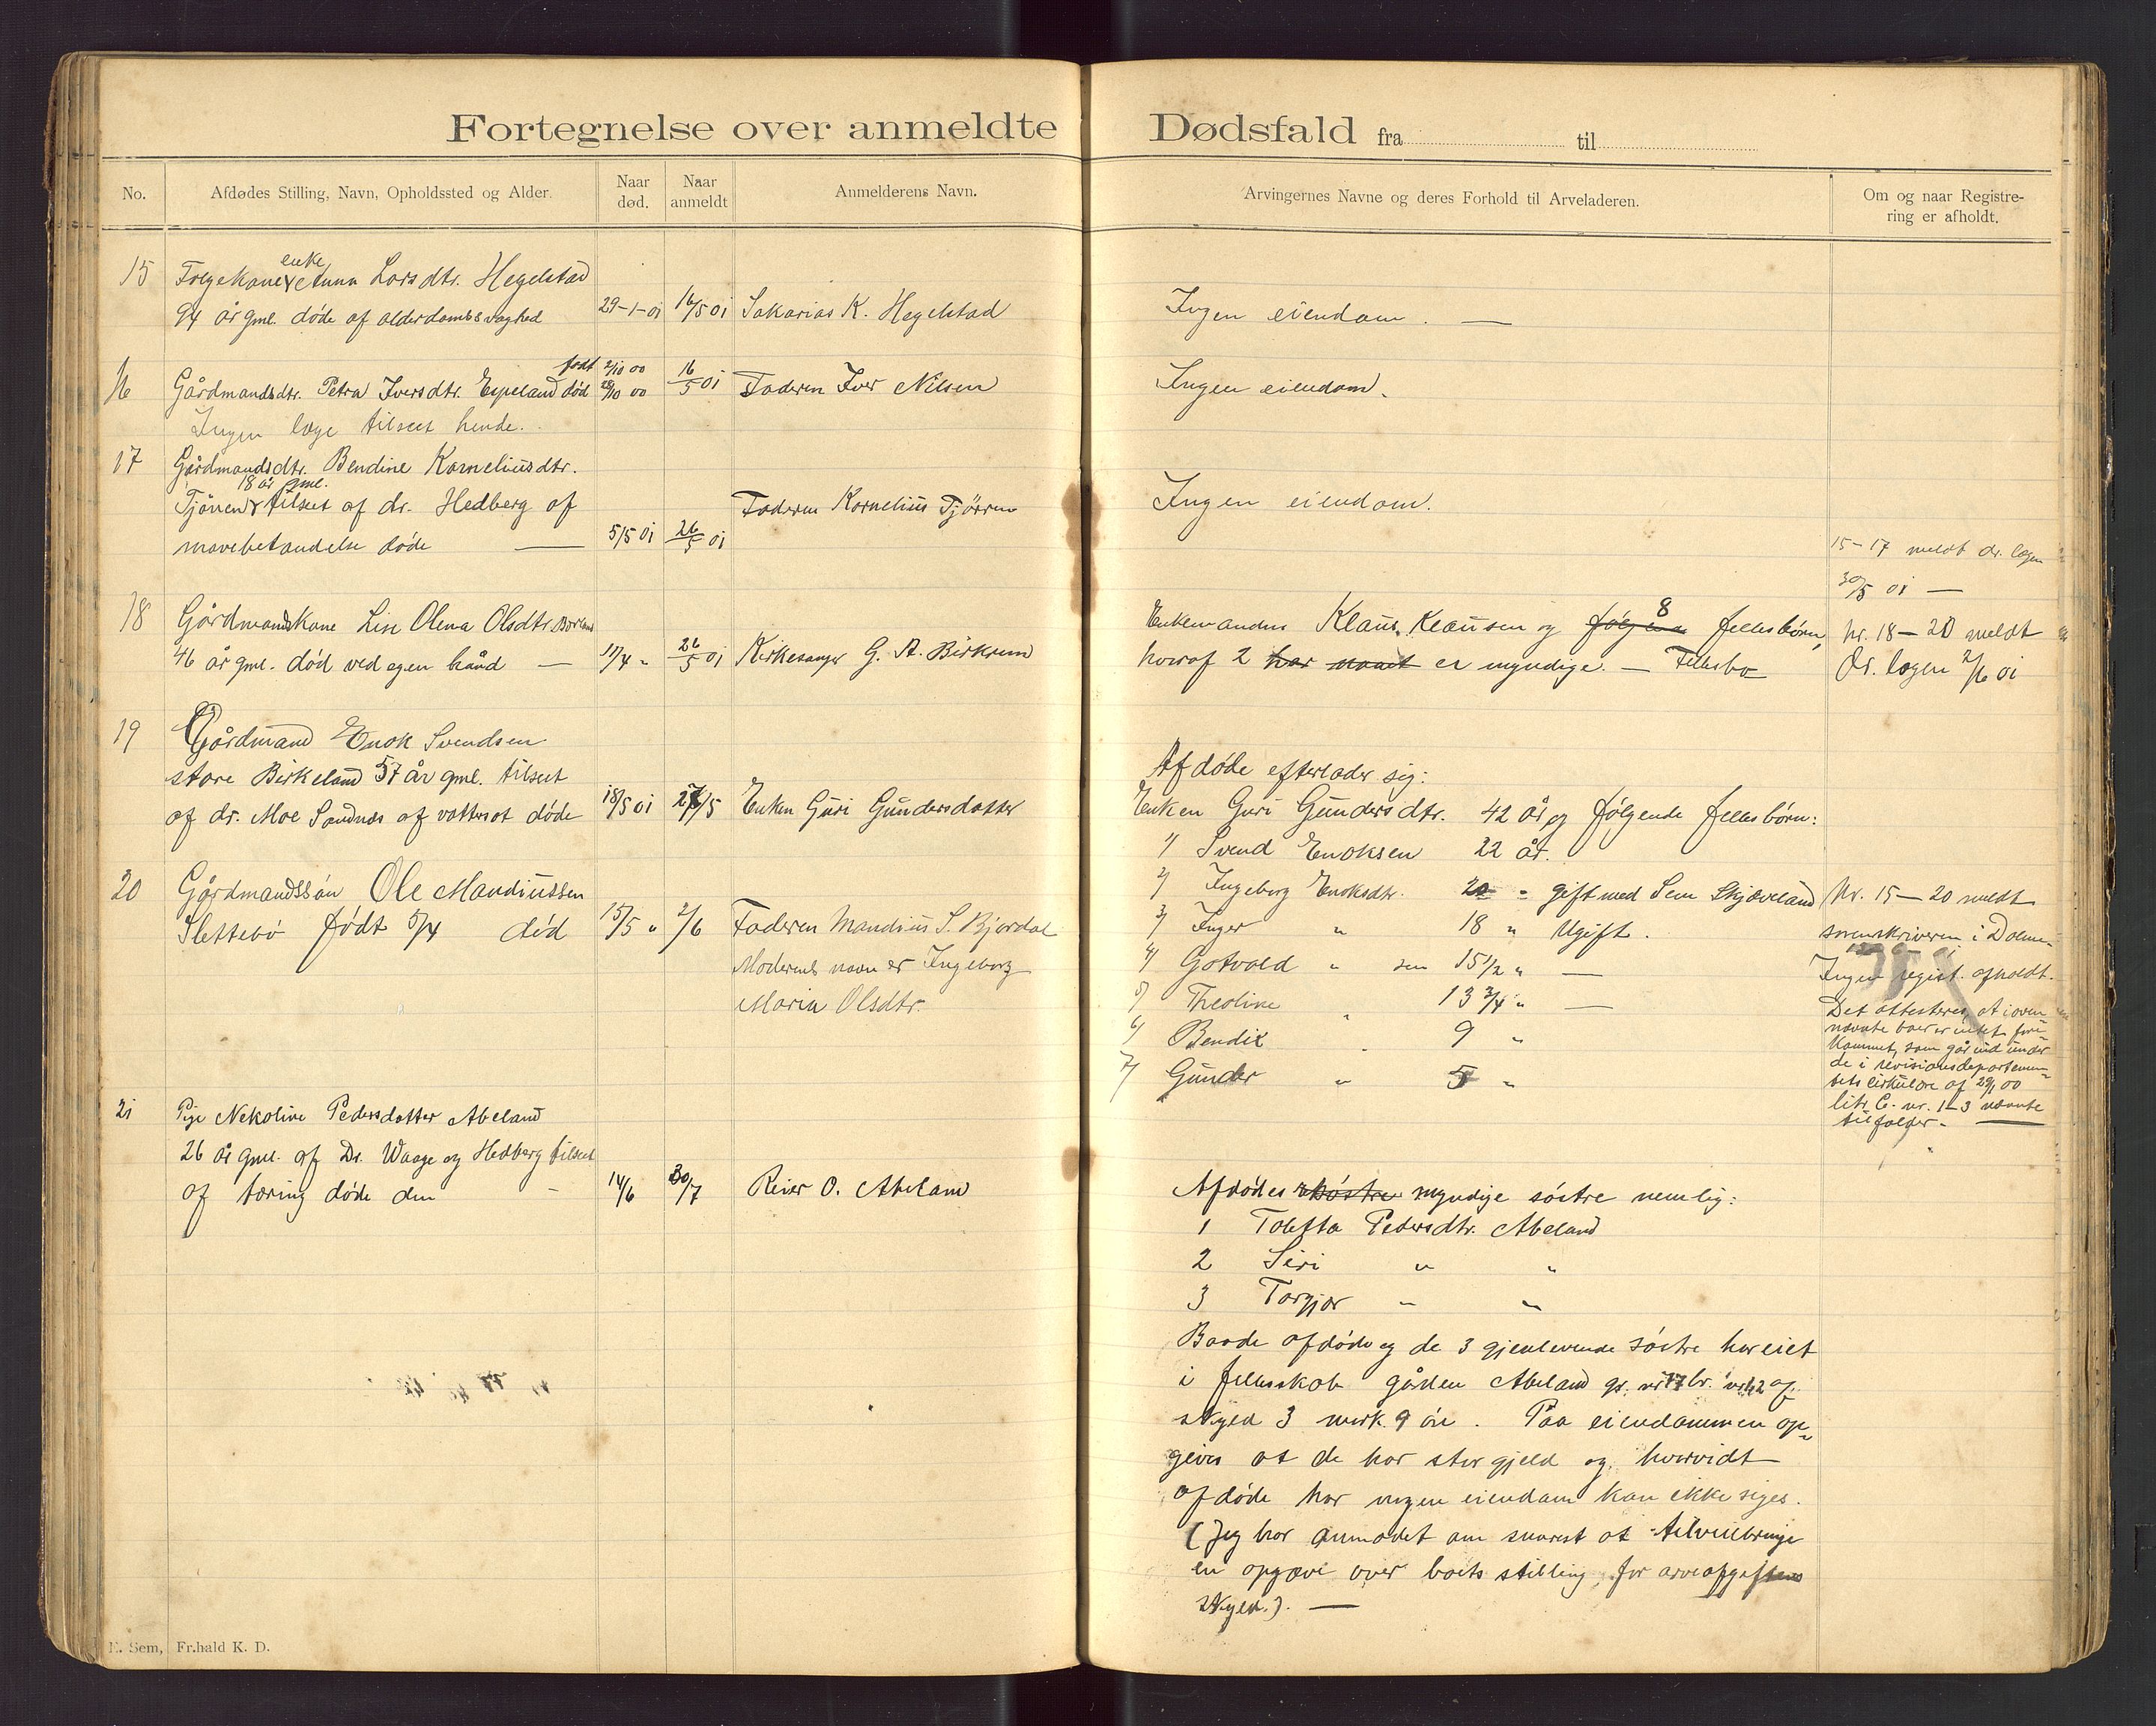 Fortegnelse over anmeldte Dødsfald fra til
No.
Afdødes Stilling, Navn, Opholdssted og Alder.
Naar død.
Naar anmeldt
Anmelderens Navn.
Arvingernes Navne og deres Forhold til Arveladeren.
Om og naar Registre-
ring er afholdt.
enke
15 Folgekone Anna Larsdtr. Hegelstad
94 år gml. døde af alderdomssvaghed 29-1-01 16/5 01 Sakarias K. Hegelstad Ingen eiendom. —
født 2/10 00
16 Gårdmandsdtr. Petra Iversdtr. Espeland død 28/10 00 16/5 01 Faderen Iver Nilsen Ingen eiendom.
Ingen læge tilseet hende.
17 Gårdmandsdtr. Bendine Korneliusdtr.
18 år gml.
Tjörren tilseet af dr. Hedberg af Faderen Kornelius Tjörren Ingen eiendom.
mavebetændelse døde — 5/5 01 26/5 01
15-17 meldt dr. lægen
30/5 01 —
18 Gårdmandskone Lise Olena Olsdtr. Borland
46 år gml. død ved egen hånd — 11/4 " 26/5 01 Kirkesanger G. A. Birkrem
Enkemanden Klaus Klausen og følgende 8 fellesbørn,
hvoraf 2 har naaet er myndige. — Fellesbo
Nr. 18-20 meldt
Dr. lægen 2/6 01
19 Gårdmand Enok Svendsen
store Birkeland 57 år gml. tilseet
af dr. Moe Sandnæs af vattersot døde 18/5 01 27/5 Enken Guri Gundersdatter
Afdøde efterlader sig:
Enken Guri Gundersdtr. 42 år og følgende fellesbørn:
1) Svend Enoksen 22 år.
2) Ingeborg Enoksdtr. 20 " gift med Sem Skjæveland
3) Inger " 18 " Ugift.
4) Gotvald " sen 15 1/2 " —
5) Theoline " 13 3/4 " —
6) Bendix " 9 "
7) Gunder " 5 "
20 Gårdmandssön Ole Mandiussen
Slettebö født 5/4 död 15/5 " 2/6 Faderen Mandius S. Bjordal
Moderens navn er Ingeborg
Maria Olsdtr.
Nr. 15-20 meldt
sorenskriveren i Dalene.
Ingen regist. afholdt.
Det attesteres, at i oven
nævnte boer er intet fore-
kommet, som går ind under
de i revisionsdepartemen-
tets cirkulære af 29/1 00
litr. C. nr. 1-3 nævnte
tilfælder. —
21 Pige Nekoline Pedersdatter Abeland
26 år gml. af Dr. Waage og Hedberg tilseet
af tæring døde den — 14/6 30/7 Reier O. Abeland
Afdødes søstre myndige søstre nemlig:
1 Toletta Pedersdtr. Abeland
2 Siri " "
3 Torgjor " "
Baade afdøde og de 3 gjenlevende søstre har eiet
i fellesskab gården Abeland gr. nr 17 br. nr. 2 af
skyld 3 mark 9 öre. Paa eiendommen op-
gives at de har stor gjeld og hvorvidt
afdøde har nogen eiendom kan ikke siges.
(Jeg har anmodet om snarest at tilveiebringe
en opgave over boets stilling for arveafgiftens
skyld.). —
E. Sem, Fr.hald K. D.